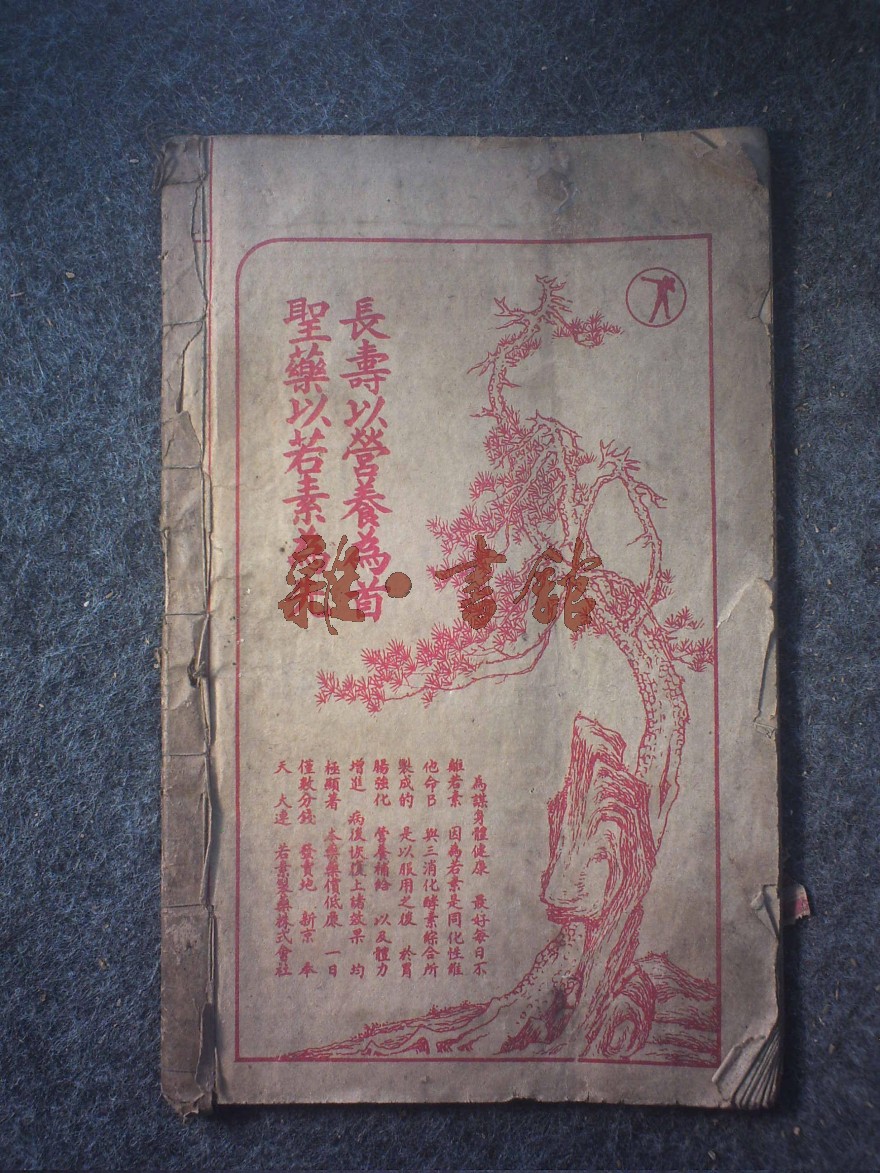 長壽以營養為首
聖藥以若素為
為謀身體健康 最好每日不
離若素 因為若素是同化性維
他命B 與三消化酵素綜合所
製成的 是以服用之後 於胃
腸強化 營養補給 以及體力
增進 病後恢復上諸效果 均
極顯著 本藥藥價低廉 一日
僅數分錢 發賣地 新京 奉
天 大連 若素製藥株式會社
雜·書館